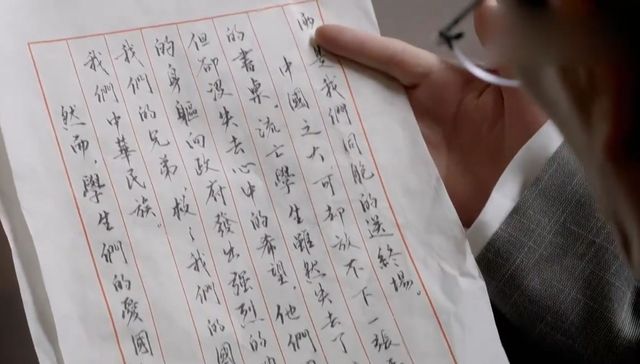 而是我們同胞的送終場。
中國之大可卻放不下一張
的書桌。流亡學生雖然失去了
但卻沒失去心中的希望,他們
的身軀向政府發出強烈的
我們的兄弟,救々我們的國
我們中華民族。
然而,學生們的愛國